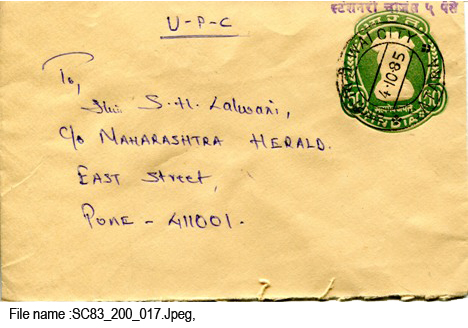 स्टेशनरी चार्जेस ५ पैसे
U-P-C
CITY
4-10-85
INDIA
To,
Shri S. H. Lalwani,
c/o MAHARASHTRA HERALD.
EAST Street,
PUNE - 411001.
File name :SC83_200_017.Jpeg,